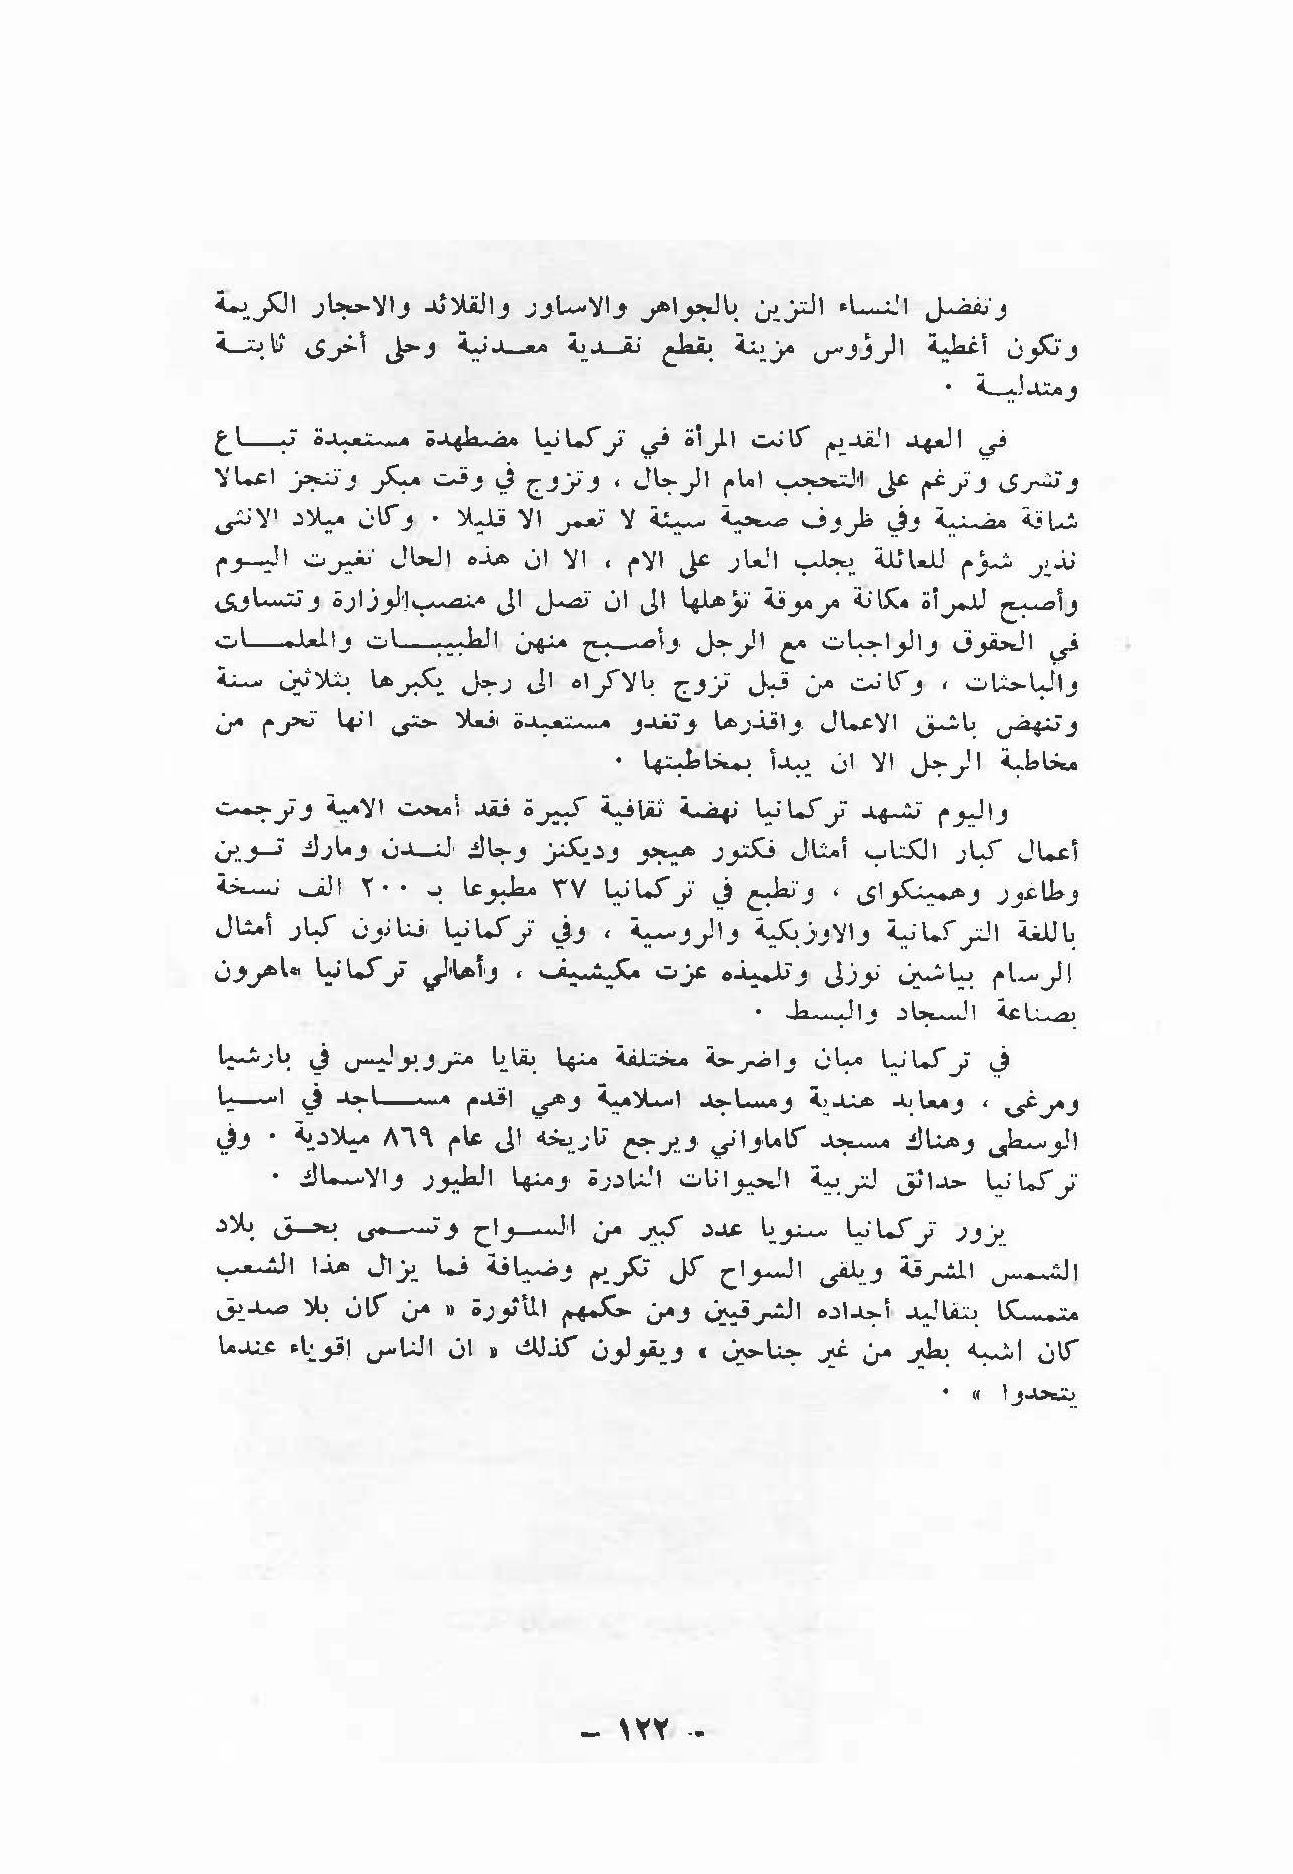 وتفضل النساء التزين بالجواهر والاساور والقلائد والاحجار الكريمة
وتكون أغطية الرؤوس مزينة بقطع نقدية معدنية وحلى أخرى ثابتة
ومتدلية ٠
في العهد القديم كانت المرأة في تركمانيا مضطهدة مستعبدة تباع
وتشرى وترغم على التحجب امام الرجال ، وتزوج في وقت مبكر وتنجز اعمالا
شاقة مضنية وفي ظروف صحية سيئة لا تعمر الا قليلا ٠ وكان ميلاد الانثى
نذير شؤم للعائلة يجلب العار على الام ، الا ان هذه الحال تغيرت اليوم
وأصبح للمرأة مكانة مرموقة تؤهلها الى ان تصل الى منصب الوزارة وتتساوى
في الحقوق والواجبات مع الرجل وأصبح منهن الطبيبات والمعلمات
والباحثات ، وكانت من قبل تزوج بالاكراه الى رجل يكبرها بثلاثين سنة
وتنهض باشق الاعمال واقذرها وتغدو مستعبدة فعلا حتى انها تحرم من
مخاطبة الرجل الا ان يبدأ بمخاطبتها ٠
واليوم تشهد تركمانيا نهضة ثقافية كبيرة فقد أمحت الامية وترجمت
أعمال كبار الكتاب أمثال فكتور هيجو وديكنز وجاك لندن ومارك توين
وطاغور وهمينكواى ، وتطبع في تركمانيا ٣٧ مطبوعا بـ ٢٠٠ الف نسخة
باللغة التركمانية والاوزبكية والروسية ، وفي تركمانيا فنانون كبار أمثال
الرسام بياشين نوزلى وتلميذه عزت مكيشيف ، وأهالي تركمانيا ماهرون
بصناعة السجاد والبسط ٠
في تركمانيا مبان واضرحة مختلفة منها بقايا متروبوليس في بارشيا
ومرغى ، ومعابد هندية ومساجد اسلامية وهي اقدم مساجد في اسيا
الوسطى وهناك مسجد كاماواني ويرجع تاريخه الى عام ٨٦٩ ميلادية ٠ وفي
تركمانيا حدائق لتربية الحيوانات النادرة ومنها الطيور والاسماك ٠
يزور تركمانيا سنويا عدد كبير من السواح وتسمى بحق بلاد
الشمس المشرقة ويلقى السواح كل تكريم وضيافة فما يزال هذا الشعب
متمسكا بتقاليد أجداده الشرقيين ومن حكمهم المأثورة « من كان بلا صديق
كان اشبه بطير من غير جناحين » ويقولون كذلك « ان الناس اقوياء عندما
يتحدوا » ٠
- ١٢٢ -